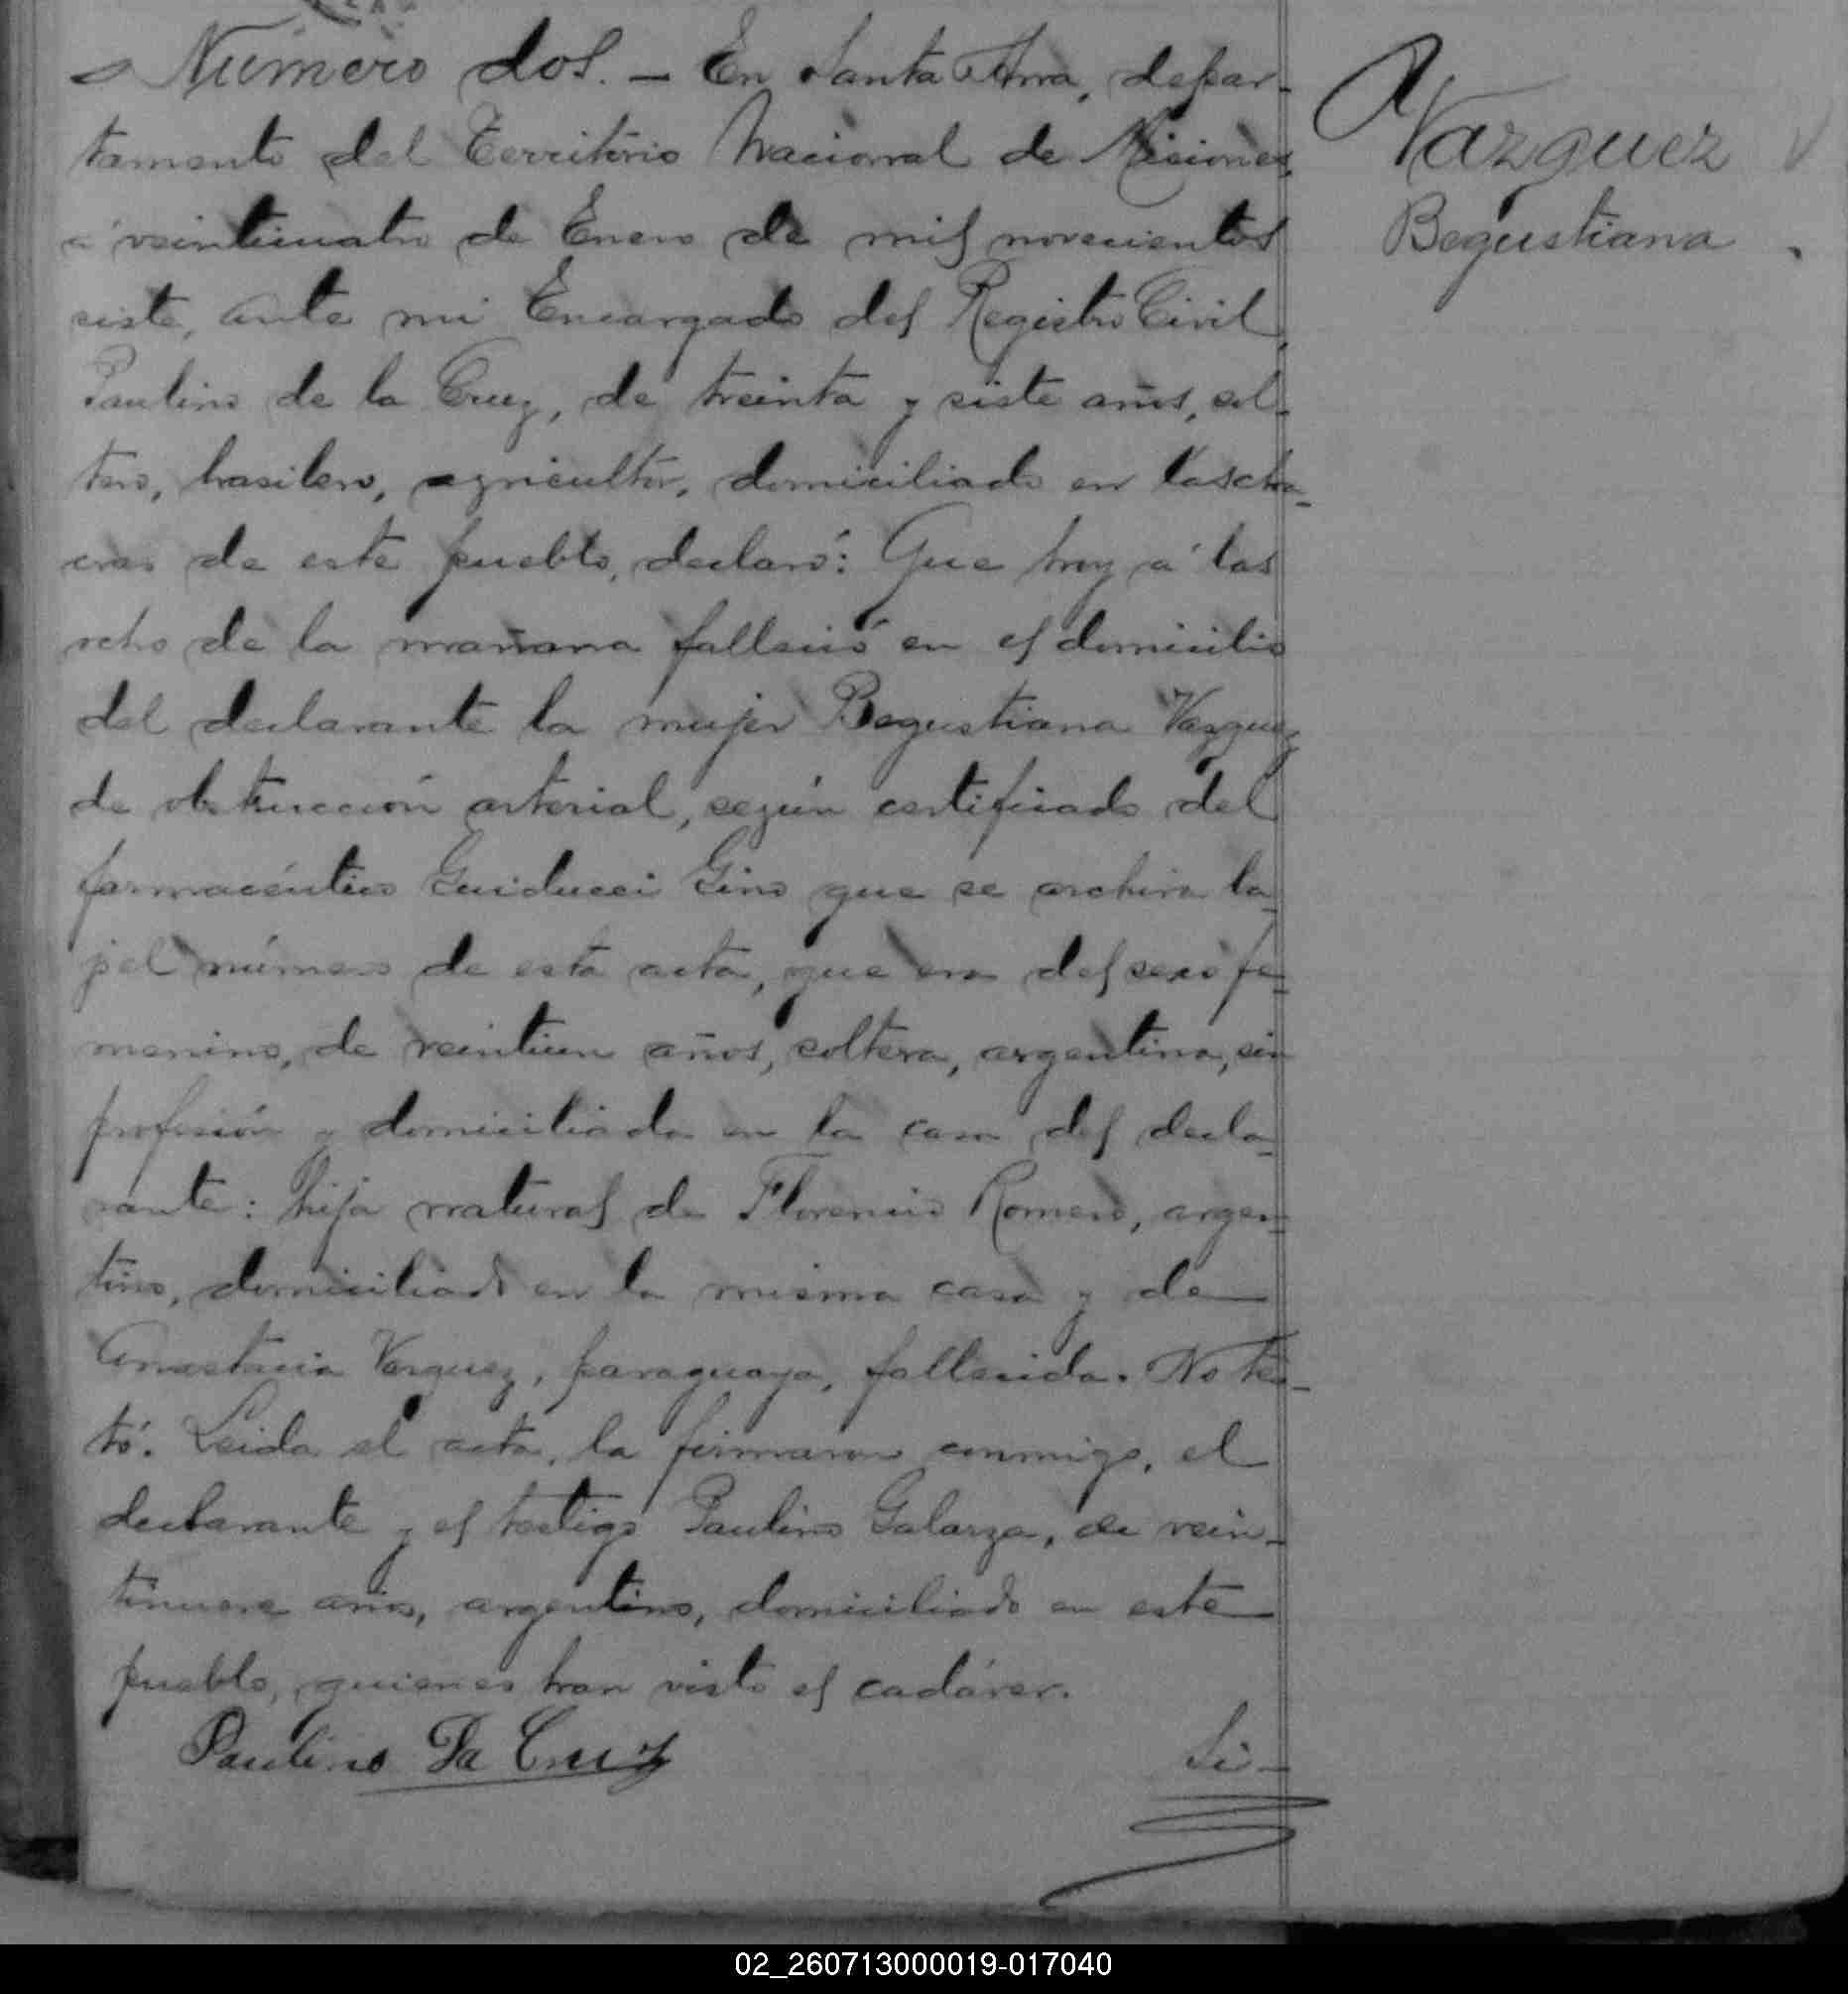 Número dos. — En Santa Ana, depar-
tamento del Territorio Nacional de Misiones,
á veinticuatro de Enero de mil novecientos
siete, ante mi Encargado del Registro Civil,
Paulino de la Cruz, de treinta y siete años, sol-
tero, brasilero, agricultor, domiciliado en las cha-
cras de este pueblo, declaró: Que hoy á las
ocho de la mañana falleció en el domicilio
del declarante la mujer Begustiana Vazquez
de obstrucción arterial, según certificado del
farmacéutico Guiducci Gino que se archiva ba-
jo el número de esta acta, que era del sexo fe-
menino, de veintiun años, soltera, argentina, sin
profesión y domiciliada en la casa del decla-
rante: hija natural de Florencio Romero, argen-
tino, domiciliado en la misma casa y de
Anastacia Vazquez, paraguaya, fallecida. No tes-
tó. Leida el acta, la firmaron conmigo, el
declarante y el testigo Paulino Galarza, de vein-
tinueve años, argentino, domiciliado en este
pueblo, quienes han visto el cadáver.
Paulino Da Cruz
Si-
Vazquez
Begustiana
02_260713000019-017040